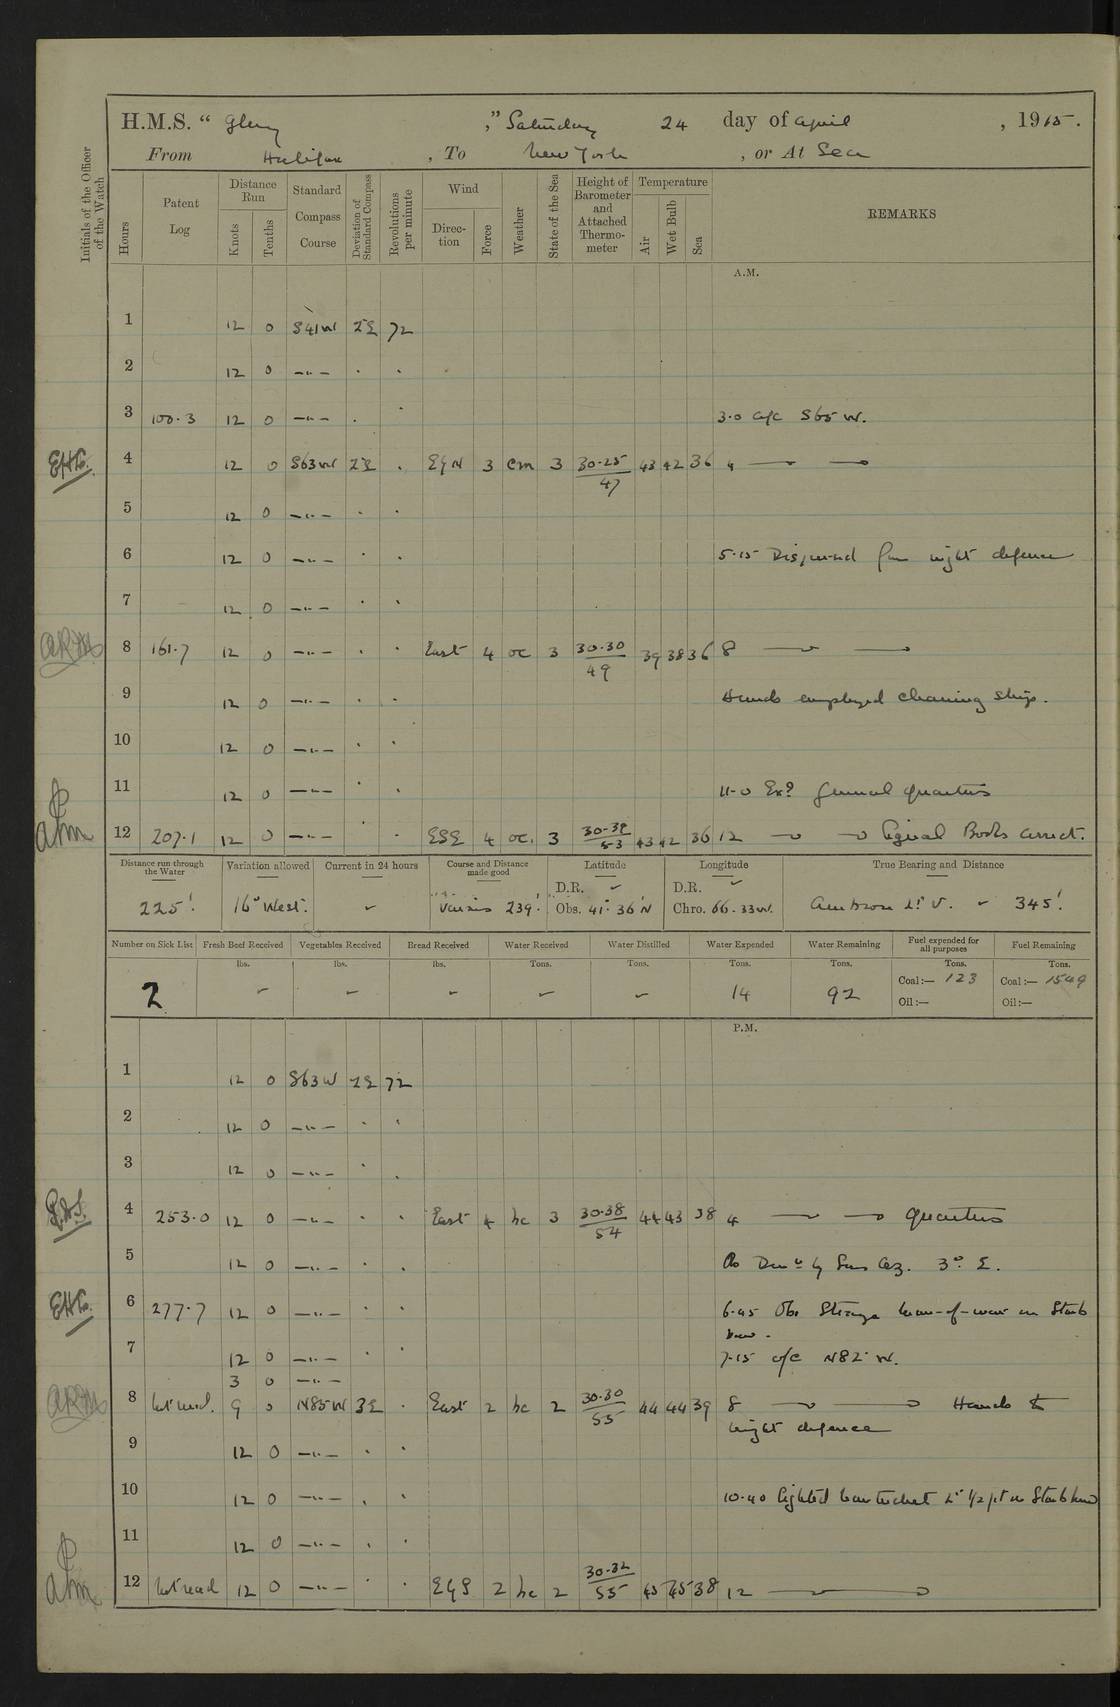 H.M.S. “ Glory ,” Saturday 24 day of April , 1915.
From Halifax , To New York , or At Sea
Initials of the Officer of the Watch
Hours
Patent Log
Distance Run
Knots
Tenths
Standard Compass Course
Deviation of Standard Compass
Revolutions per minute
Wind
Direction
Force
Weather
State of the Sea
Height of Barometer and Attached Thermometer
Temperature
Air
Wet Bulb
Sea
REMARKS
A.M.
1 12 0 S41W 2E 72
2 12 0 —"— . .
3 100.3 12 0 —"— . . 3.0 a/c S65W.
4 12 0 S63W 2E . EbyN 3 cm 3 30.25/47 43 42 36 4
5 12 0 —"— . .
6 12 0 —"— . . 5.15 Dispersed from night defence
7 12 0 —"— . .
8 161.7 12 0 —"— . . East 4 oc 3 30.30/49 39 38 36 8
9 12 0 —"— . . Hands employed cleaning ship.
10 12 0 —"— . .
11 12 0 —"— . . 11.0 Exd General quarters
12 207.1 12 0 —"— . . ESE 4 oc. 3 53 43 42 36 12 Signal Books correct.
Distance run through the Water
Variation allowed
Current in 24 hours
Course and Distance made good
Latitude
Longitude
True Bearing and Distance
225'. 16° West. – Various 239'. D.R. – D.R. –
Obs. 41° 36' N Chro. 66.33W. Ambrose Lt V. – 345'
Number on Sick List
Fresh Beef Received
Vegetables Received
Bread Received
Water Received
Water Distilled
Water Expended
Water Remaining
Fuel expended for all purposes
Fuel Remaining
lbs. lbs. lbs. Tons. Tons. Tons. Tons. Tons. Tons.
2 – – – – – 14 92 Coal:— 123 Coal:— 1549
Oil:— Oil:—
P.M.
1 12 0 S63W 2E 72
2 12 0 —"— . .
3 12 0 —"— . .
4 253.0 12 0 —"— . . East 4 bc 3 30.38/54 44 43 38 4 Quarters
5 12 0 —"— . . Obs Devn by Sun Az. 3° E.
6 277.7 12 0 —"— . . 6.45 Obs Strange man-of-war on Starb
bow.
7 12 0 —"— . . 7.15 a/c N82°W.
3 0 —"—
8 Not read. 9 0 N85W 3E . East 2 bc 2 30.30/55 44 44 39 8 Hands to
night defence
9 12 0 —"— . .
10 12 0 —"— . . 10.40 Sighted Nantucket Lt 1/2 pt on Starb bow
11 12 0 —"— . .
12 Not read 12 0 —"— . . EbyS 2 bc 2 30.32/55 45 45 38 12